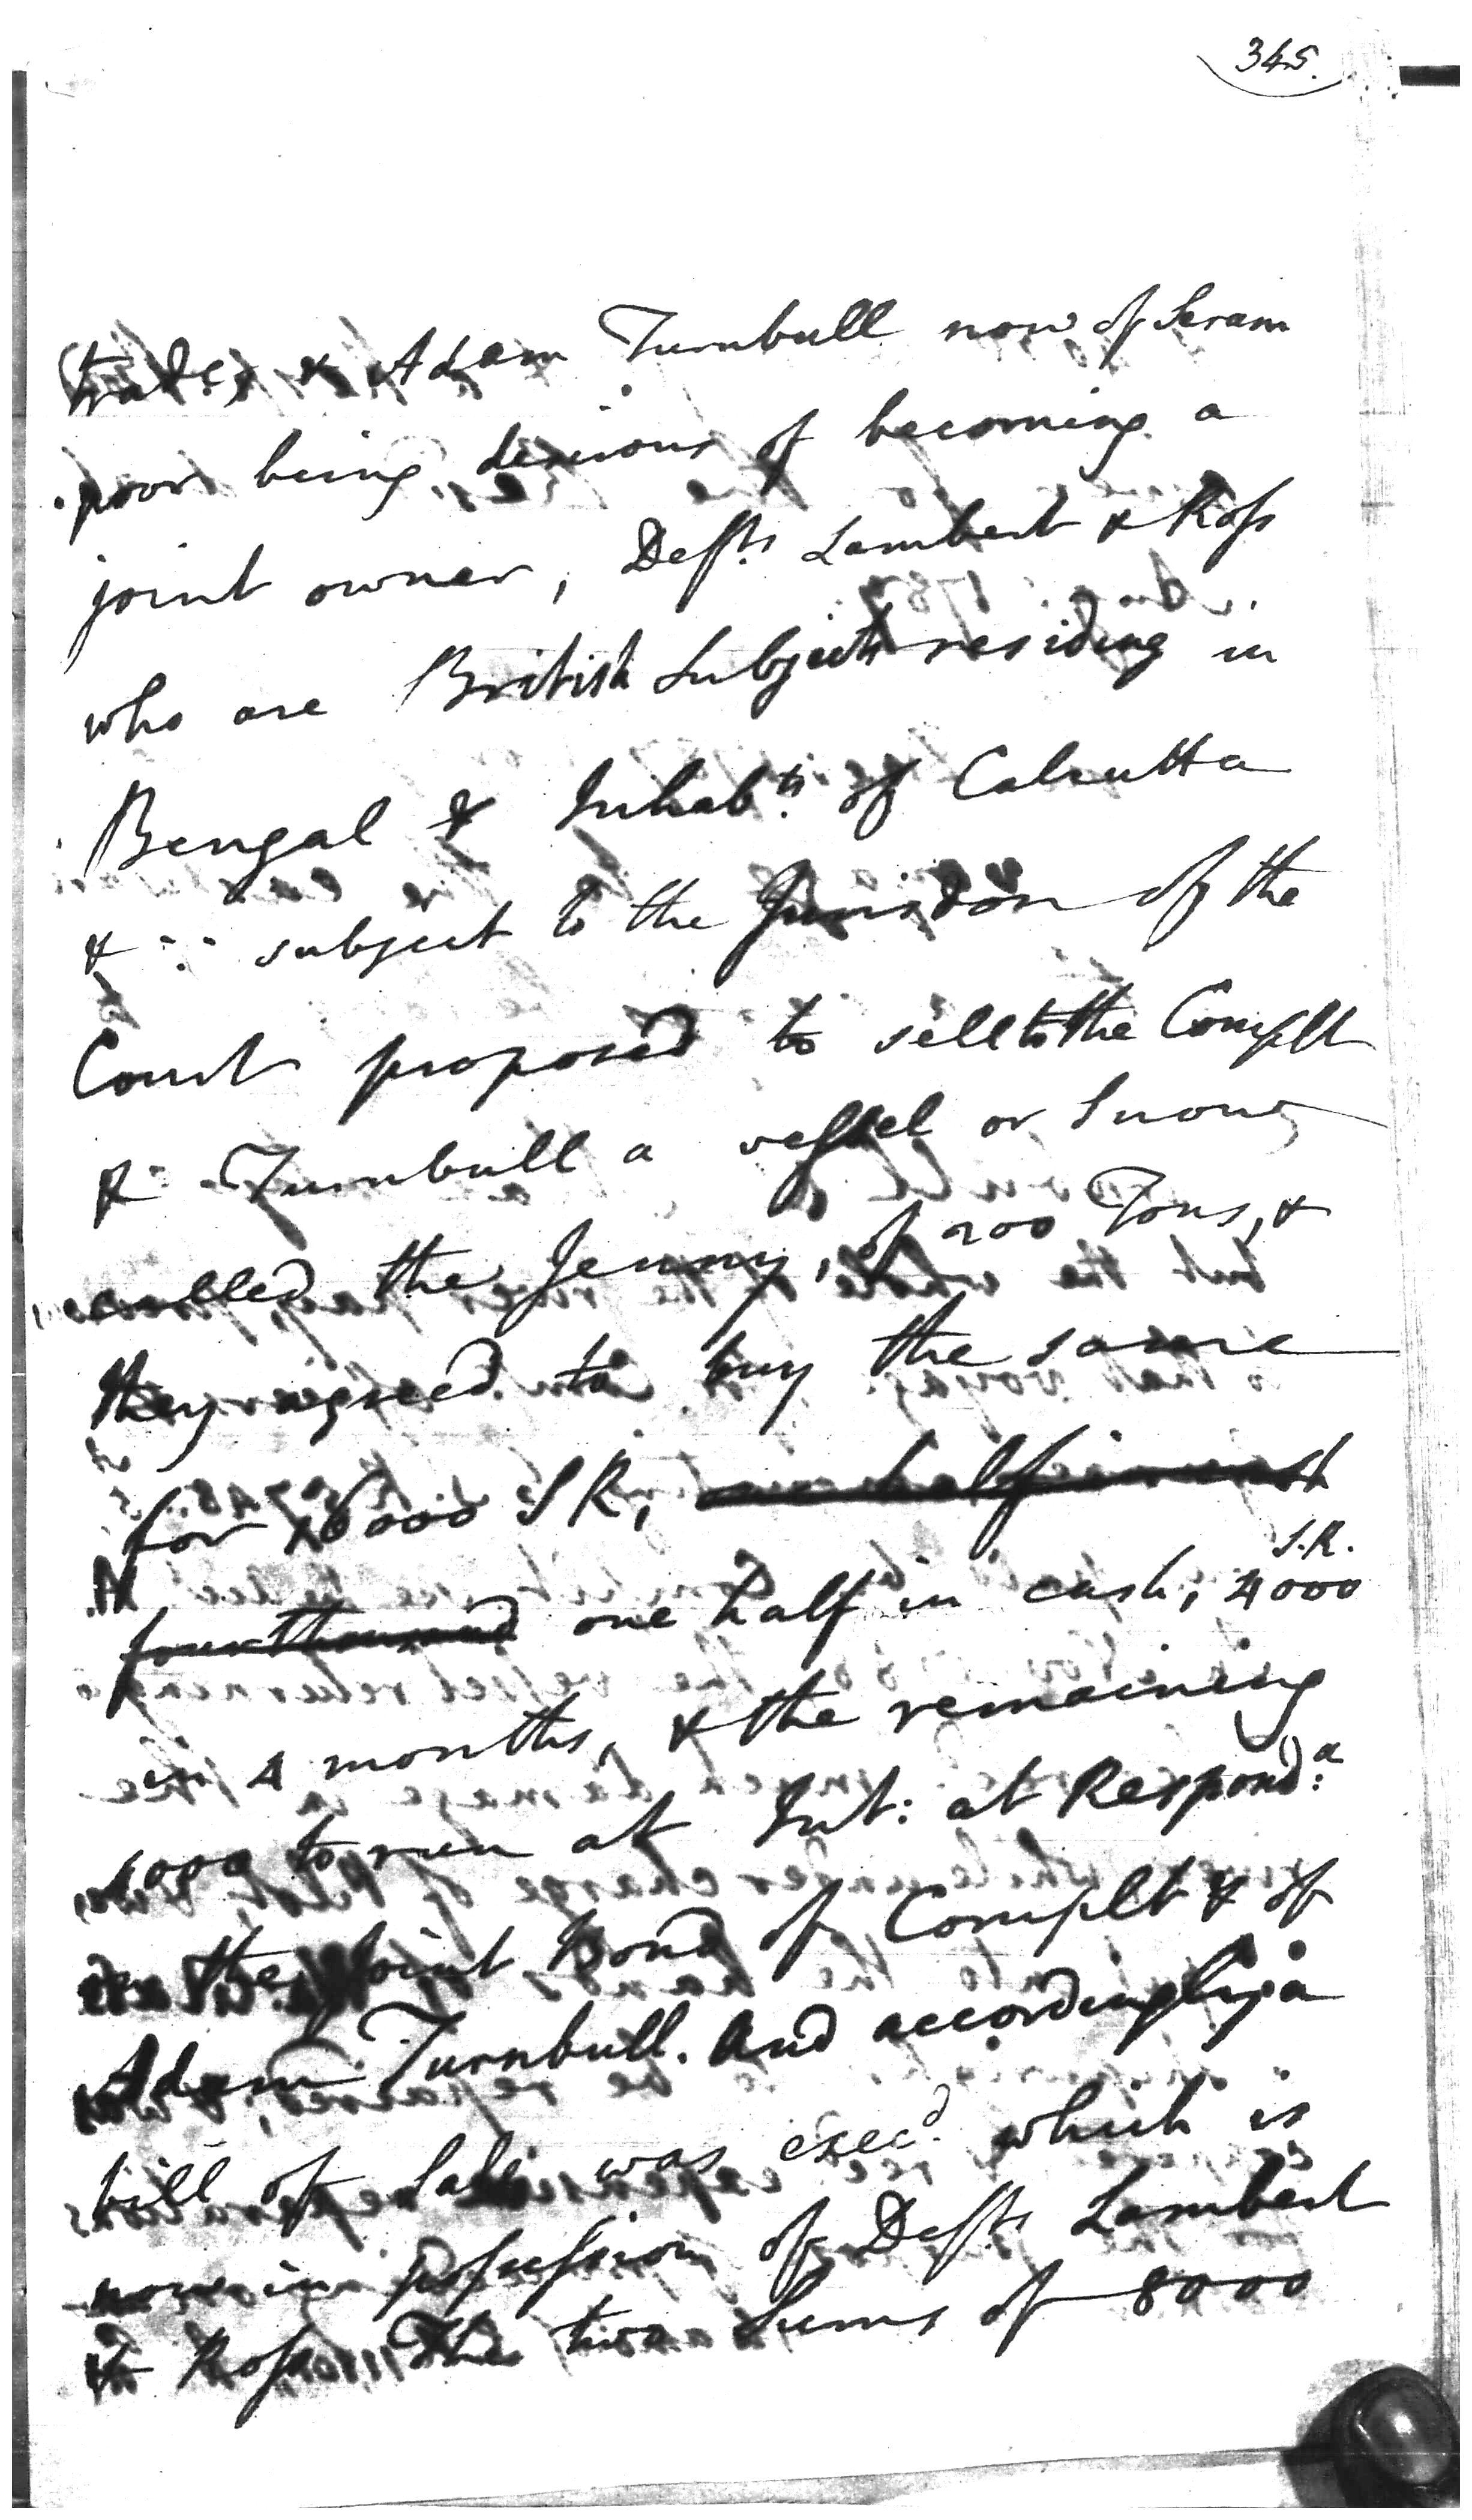 345.
trade, & Adam Turnbull now of Seram
poor being desirous of becoming a
joint owner, Defts Lambert & Ross
who are British Subjects residing in
Bengal & Inhabts. of Calcutta
& ∵ subject to the Jurisdon of the
Court proposed to sell to the Complt
& Turnbull a vessel or Snow,
called the Jenny, of 200 Tons, &
they agreed to buy the same
for 16000 SR, one half in cash
& four thousand one half in cash, 4000 S.R.
in 4 months, & the remaining
4000 to run at Int: at Responda:
on the joint bond of Complt & of
Adam Turnbull. And accordingly a
bill of Sale was execd. which is
now in possession of Defts Lambert
& Ross. The two Sums of 8000